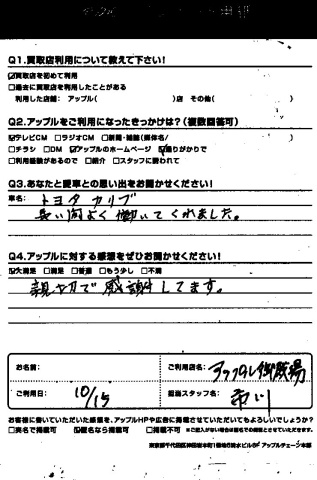 Q1.買取店利用について教えて下さい!
☑買取店を初めて利用
□過去に買取店を利用したことがある
利用した店舗: アップル( )店 その他( )
Q2.アップルをご利用になったきっかけは?(複数回答可)
☑テレビCM □ラジオCM □新聞・雑誌(媒体名/ )
□チラシ □DM ☑アップルのホームページ ☑通りがかりで
□利用経験があるので □紹介 □スタッフに誘われて
Q3.あなたと愛車との思い出をお聞かせください!
車名: トヨタ カリブ
長い間よく働いてくれました。
Q4.アップルに対する感想をぜひお聞かせください!
☑大満足 □満足 □普通 □もう少し □不満
親切で感謝してます。
お名前:
ご利用店名: アップル御殿場
ご利用日: 10/15
担当スタッフ名: 市川
お客様に書いていただいた感想を、アップルHPや広告に掲載させていただいてもよろしいでしょうか?
□実名で掲載可 ☑匿名なら掲載可 □掲載不可 ※ご記入がない場合は匿名での掲載とさせていただきます。
アップルチェーン本部